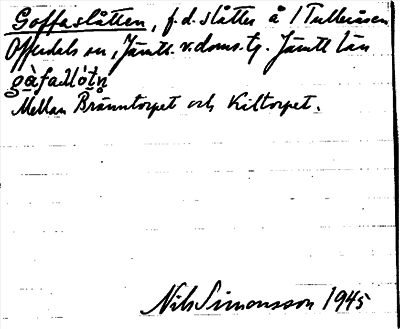 Goffaslåtten, f.d. slåtter å 1 Tulleråsen
Offerdals sn, Jämtl. v. doms. tg. Jämtl län
gàfaslòtn̥
Mellan Bränntorpet och Kiltorpet.
Nils Simonsson 1945